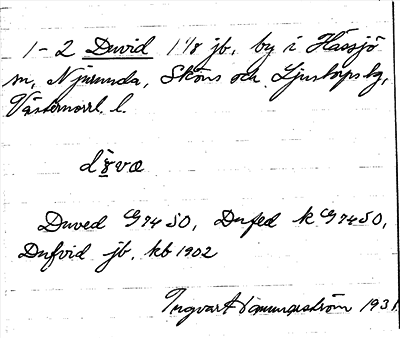 1-2 Duvid 1 1/8 jb, by i Hässjö
sn, Njurunda, Sköns och Ljustorps tg,
Västernorrl. l.
Duved G74 SO, Dufed k G74 SO,
Dufvid jb, kb 1902
Ingvart 1931.